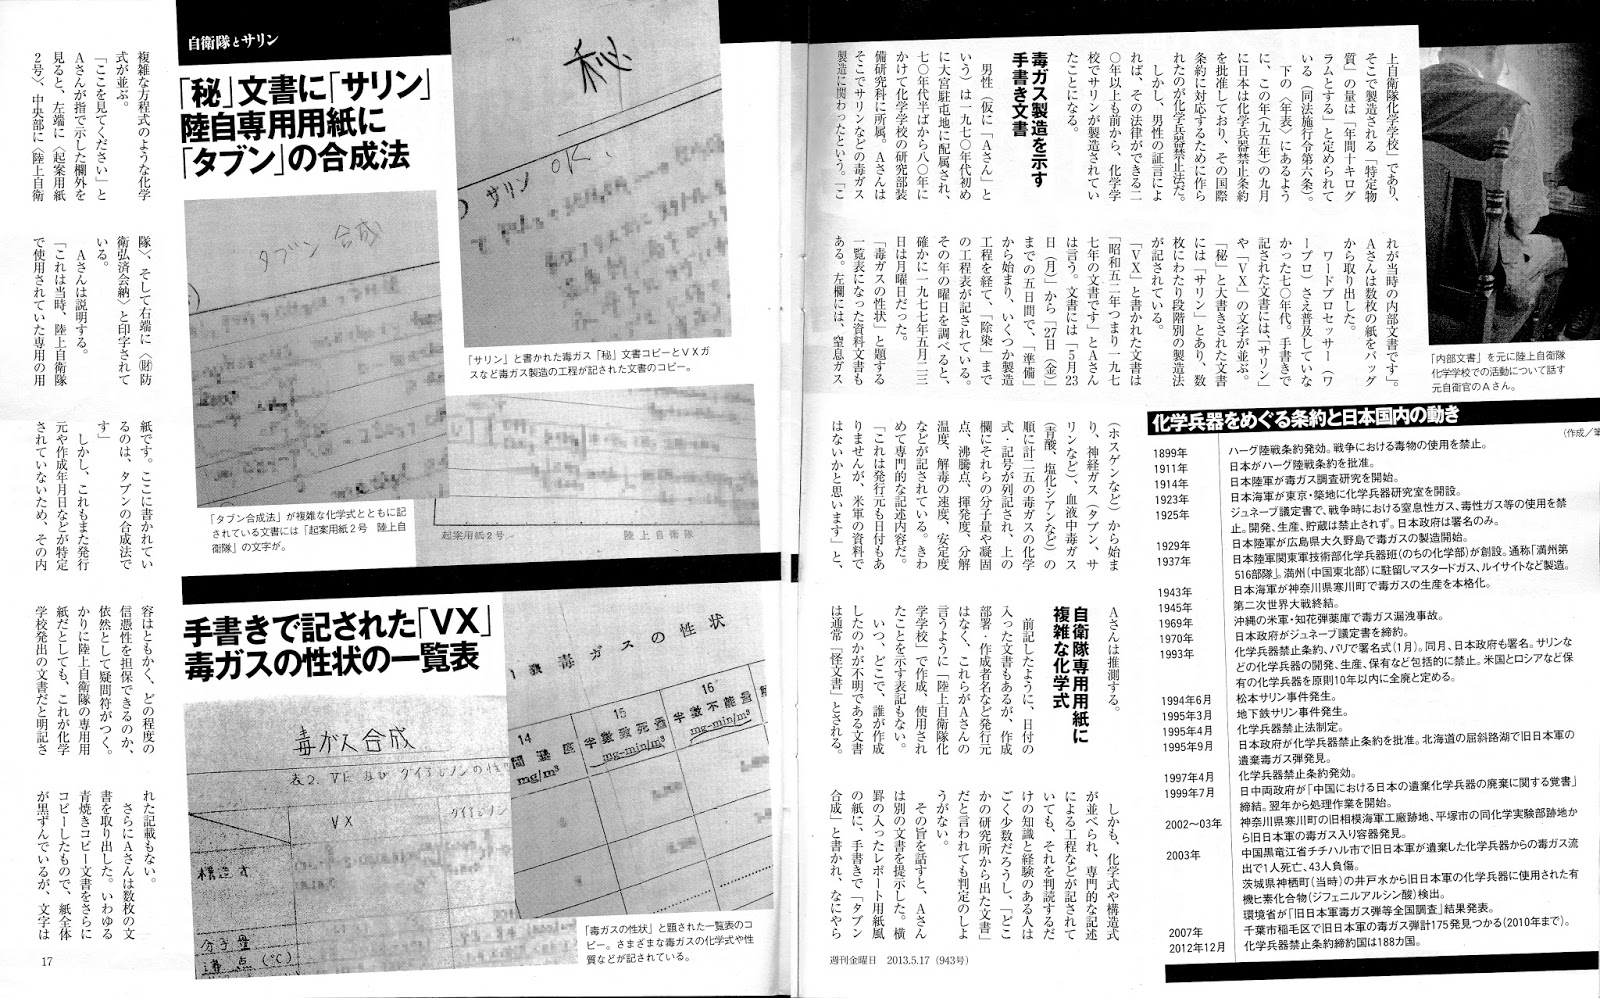 上自衛隊化学学校」であり、
そこで製造される「特定物
質」の量は「年間十キログ
ラムとする」と定められて
いる（同法施行令第六条）。
下の〈年表〉にあるよう
に、この年（九五年）の九月
に日本は化学兵器禁止条約
を批准しており、その国際
条約に対応するために作ら
れたのが化学兵器禁止法だ。
しかし、男性の証言によ
れば、その法律ができる二
〇年以上も前から、化学学
校でサリンが製造されてい
たことになる。
毒ガス製造を示す
手書き文書
男性（仮に「Aさん」と
いう）は一九七〇年代初め
に大宮駐屯地に配属され、
七〇年代半ばから八〇年に
かけて化学学校の研究部装
備研究科に所属。Aさんは
そこでサリンなどの毒ガス
製造に関わったという。「こ
れが当時の内部文書です」。
Aさんは数枚の紙をバッグ
から取り出した。
ワードプロセッサー（ワ
ープロ）さえ普及していな
かった七〇年代。手書きで
記された文書には、「サリン」
や「VX」の文字が並ぶ。
「秘」と大書きされた文書
には「サリン」とあり、数
枚にわたり段階別の製造法
が記されている。
「VX」と書かれた文書は
「昭和五二年つまり一九七
七年の文書です」とAさん
は言う。文書には「5月23
日（月）」から「27日（金）」
までの五日間で、「準備」
から始まり、いくつか製造
工程を経て、「除染」まで
の工程表が記されている。
その年の曜日を調べると、
確かに一九七七年五月二三
日は月曜日だった。
「毒ガスの性状」と題する
一覧表になった資料文書も
ある。左欄には、窒息ガス
（ホスゲンなど）から始ま
り、神経ガス（タブン、サ
リンなど）、血液中毒ガス
（青酸、塩化シアンなど）の
順に計二五の毒ガスの化学
式・記号が列記され、上の
欄にそれらの分子量や凝固
点、沸騰点、揮発度、分解
温度、解毒の速度、安定度
などが記されている。きわ
めて専門的な記述内容だ。
「これは発行元も日付もあ
りませんが、米軍の資料で
はないかと思います」と、
Aさんは推測する。
自衛隊専用用紙に
複雑な化学式
前記したように、日付の
入った文書もあるが、作成
部署・作成者名など発行元
はなく、これらがAさんの
言うように「陸上自衛隊化
学学校」で作成、使用され
たことを示す表記もない。
いつ、どこで、誰が作成
したのかが不明である文書
は通常「怪文書」とされる。
しかも、化学式や構造式
が並べられ、専門的な記述
による工程などが記されて
いても、それを判読するだ
けの知識と経験のある人は
ごく少数だろうし、「どこ
かの研究所から出た文書」
だと言われても判定のしよ
うがない。
その旨を話すと、Aさん
は別の文書を提示した。横
罫の入ったレポート用紙風
の紙に、手書きで「タブン
合成」と書かれ、なにやら
「内部文書」を元に陸上自衛隊
化学学校での活動について話す
元自衛官のAさん。
化学兵器をめぐる条約と日本国内の動き
（作成／筆
1899年 ハーグ陸戦条約発効。戦争における毒物の使用を禁止。
1911年 日本がハーグ陸戦条約を批准。
1914年 日本陸軍が毒ガス調査研究を開始。
1923年 日本海軍が東京・築地に化学兵器研究室を開設。
1925年 ジュネーブ議定書で、戦争時における窒息性ガス、毒性ガス等の使用を禁
止。開発、生産、貯蔵は禁止されず。日本政府は署名のみ。
1929年 日本陸軍が広島県大久野島で毒ガスの製造開始。
1937年 日本陸軍関東軍技術部化学兵器班（のちの化学部）が創設。通称「満州第
516部隊」。満州（中国東北部）に駐留しマスタードガス、ルイサイトなど製造。
1943年 日本海軍が神奈川県寒川町で毒ガスの生産を本格化。
1945年 第二次世界大戦終結。
1969年 沖縄の米軍・知花弾薬庫で毒ガス漏洩事故。
1970年 日本政府がジュネーブ議定書を締約。
1993年 化学兵器禁止条約、パリで署名式（1月）。同月、日本政府も署名。サリンな
どの化学兵器の開発、生産、保有など包括的に禁止。米国とロシアなど保
有の化学兵器を原則10年以内に全廃と定める。
1994年6月 松本サリン事件発生。
1995年3月 地下鉄サリン事件発生。
1995年4月 化学兵器禁止法制定。
1995年9月 日本政府が化学兵器禁止条約を批准。北海道の屈斜路湖で旧日本軍の
遺棄毒ガス弾発見。
1997年4月 化学兵器禁止条約発効。
1999年7月 日中両政府が「中国における日本の遺棄化学兵器の廃棄に関する覚書」
締結。翌年から処理作業を開始。
2002〜03年 神奈川県寒川町の旧相模海軍工廠跡地、平塚市の同化学実験部跡地か
ら旧日本軍の毒ガス入り容器発見。
2003年 中国黒竜江省チチハル市で旧日本軍が遺棄した化学兵器からの毒ガス流
出で1人死亡、43人負傷。
茨城県神栖町（当時）の井戸水から旧日本軍の化学兵器に使用された有
機ヒ素化合物（ジフェニルアルシン酸）検出。
環境省が「旧日本軍毒ガス弾等全国調査」結果発表。
2007年 千葉市稲毛区で旧日本軍の毒ガス弾計175発見つかる（2010年まで）。
2012年12月 化学兵器禁止条約締約国は188カ国。
週刊金曜日 2013.5.17（943号）
自衛隊とサリン
「秘」文書に「サリン」
陸自専用用紙に
「タブン」の合成法
秘
サリン OK.
「サリン」と書かれた毒ガス「秘」文書コピーとVXガ
スなど毒ガス製造の工程が記された文書のコピー。
タブン 合成
起案用紙2号 陸上自衛隊
「タブン合成法」が複雑な化学式とともに記
されている文書には「起案用紙2号 陸上自
衛隊」の文字が。
手書きで記された「VX」
毒ガスの性状の一覧表
毒ガスの性状
14
mg/m³
15
半数致死量
mg-min/m³
16
半数不能量
mg-min/m³
毒ガス合成
VX
構造式
分子量
沸点(℃)
「毒ガスの性状」と題された一覧表のコ
ピー。さまざまな毒ガスの化学式や性
質などが記されている。
複雑な方程式のような化学
式が並ぶ。
「ここを見てください」と
Aさんが指で示した欄外を
見ると、左端に〈起案用紙
2号〉、中央部に〈陸上自衛
隊〉、そして右端に〈㈶防
衛弘済会納〉と印字されて
いる。
Aさんは説明する。
「これは当時、陸上自衛隊
で使用されていた専用の用
紙です。ここに書かれてい
るのは、タブンの合成法で
す」
しかし、これもまた発行
元や作成年月日などが特定
されていないため、その内
容はともかく、どの程度の
信憑性を担保できるのか、
依然として疑問符がつく。
かりに陸上自衛隊の専用用
紙だとしても、これが化学
学校発出の文書だと明記さ
れた記載もない。
さらにAさんは数枚の文
書を取り出した。いわゆる
青焼きコピー文書をさらに
コピーしたもので、紙全体
が黒ずんでいるが、文字は
17